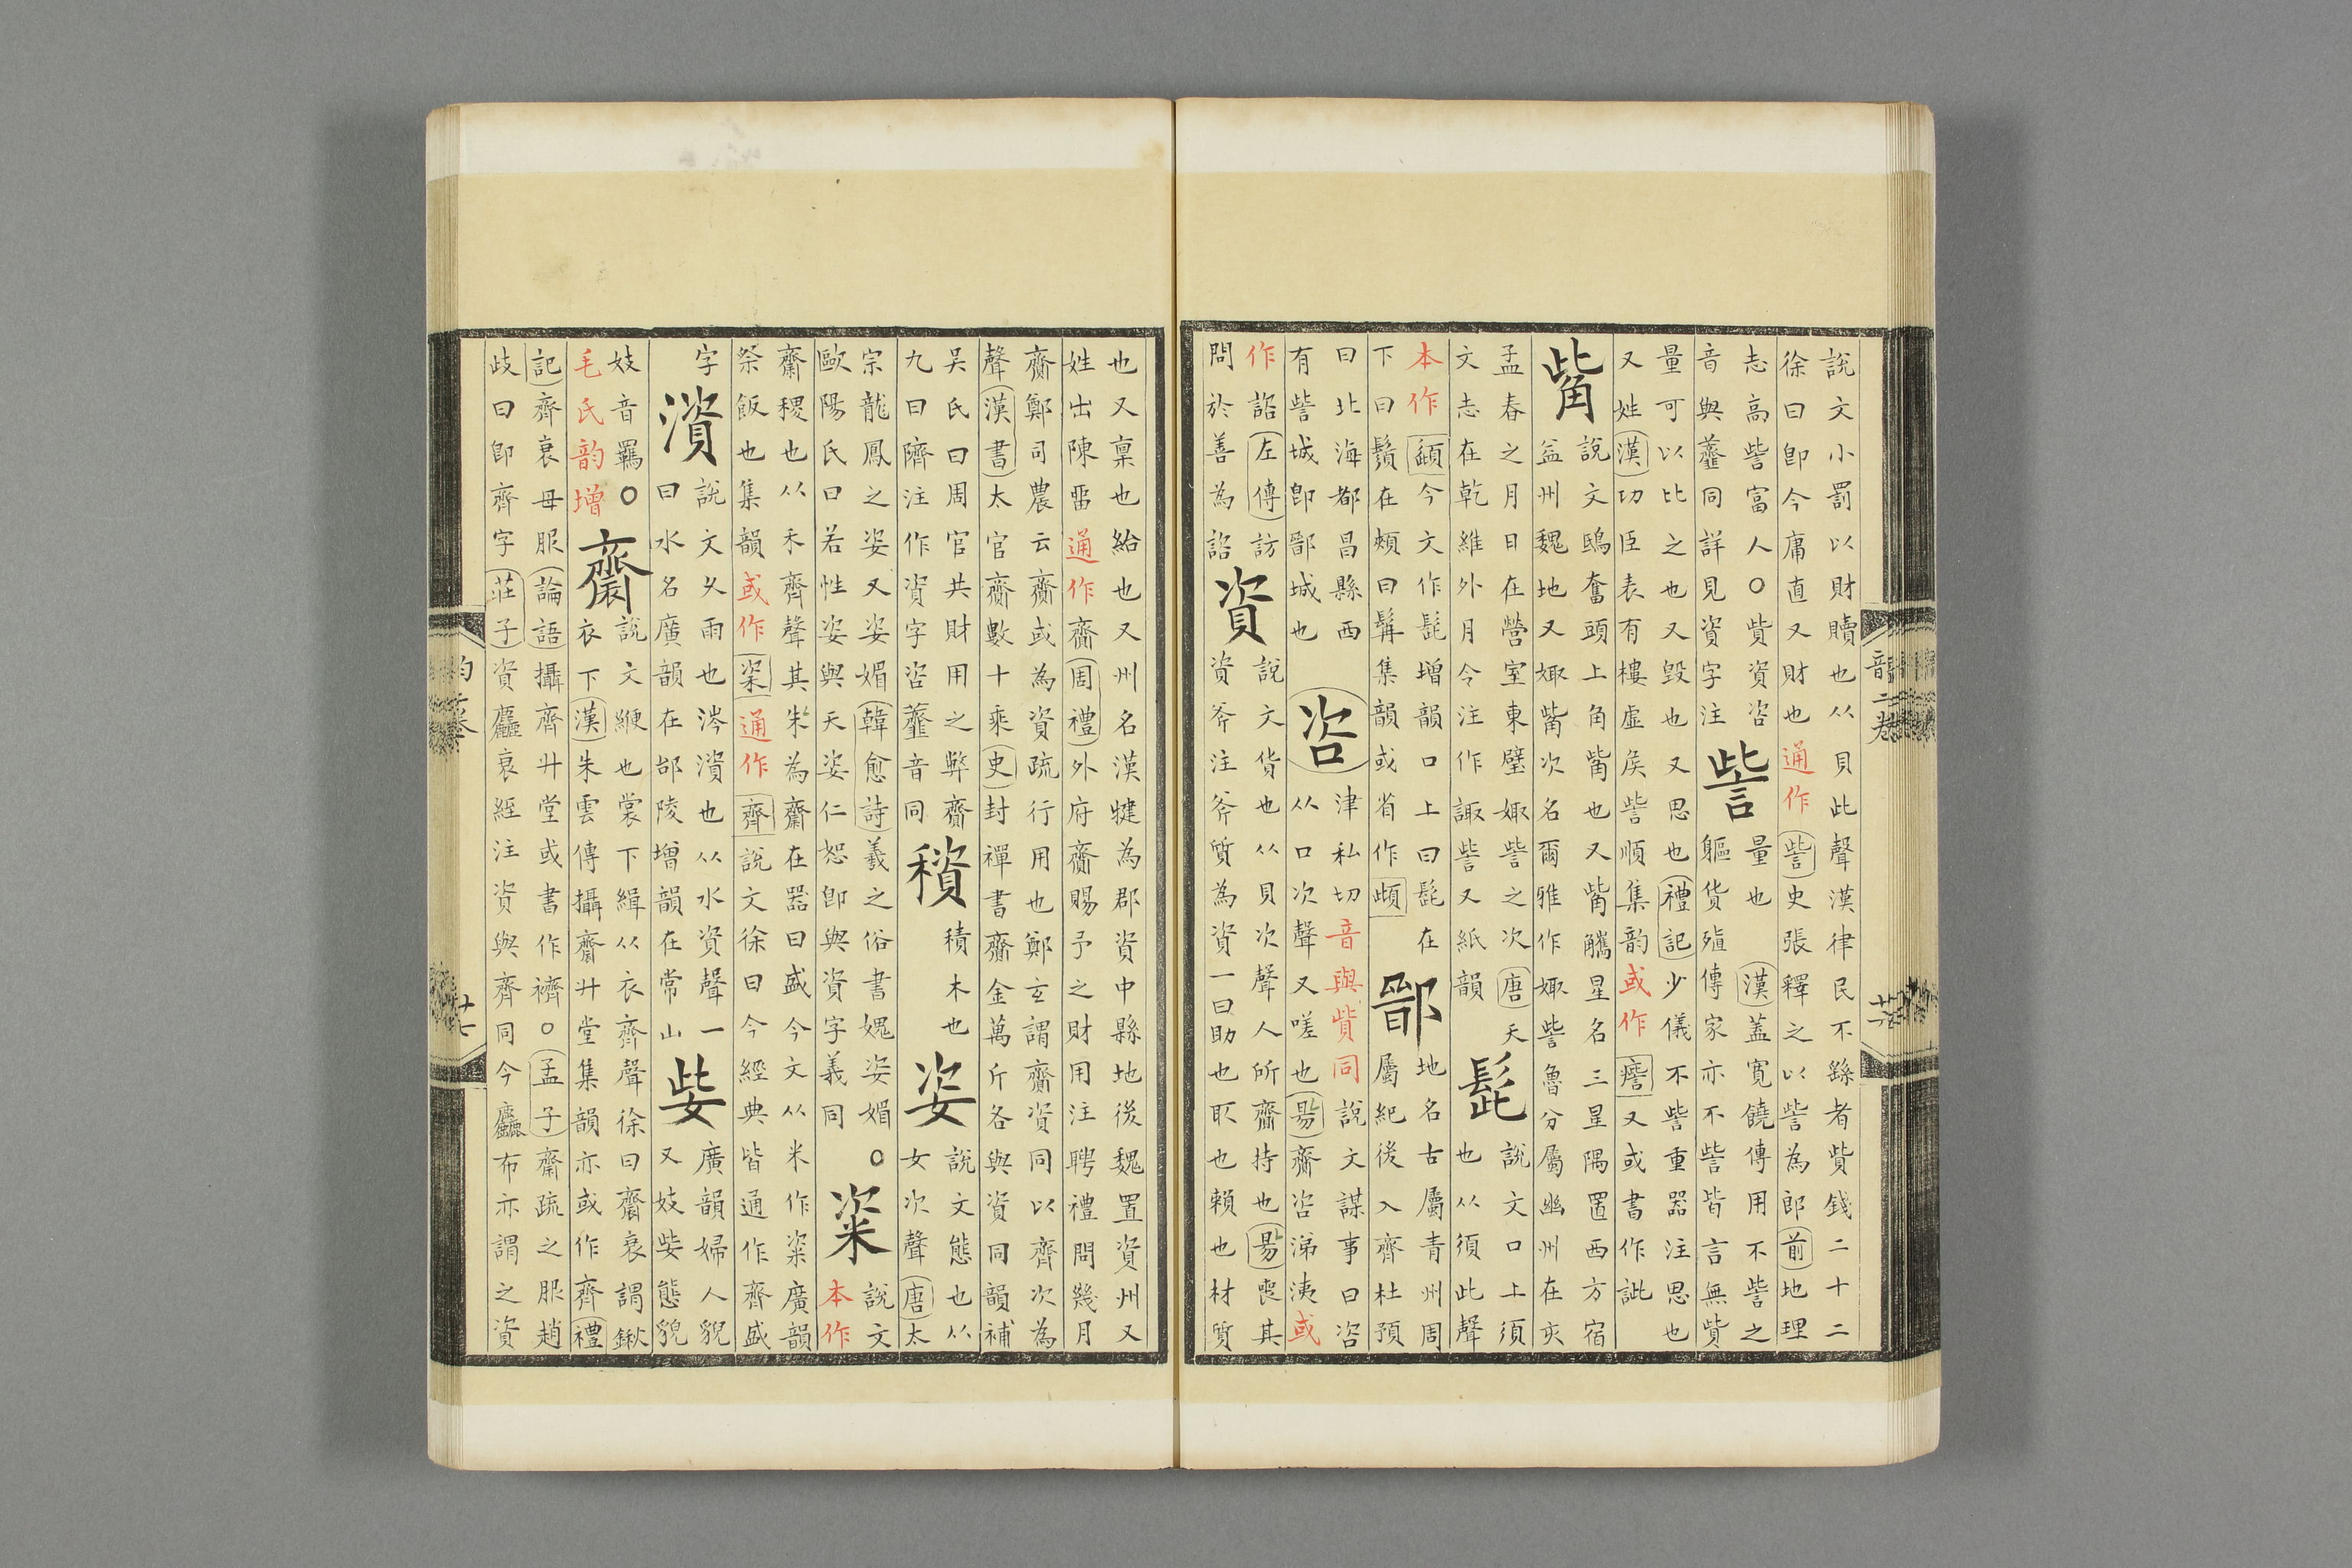 說文小罰以財贖也从貝此聲漢律民不繇者貲錢二十二
徐曰卽今庸直又財也通作訾史張釋之以訾為郎前地理
志高訾富人○貲資咨
音與虀同詳見資字注
訾
量也漢蓋寛饒傳用不訾之
軀貨殖傳家亦不訾皆言無貲
量可以比之也又毁也又思也禮記少儀不訾重器注思也
又姓漢功臣表有樓虛侯訾順集韵或作𧪰又或書作訿
觜
說文鴟奮頭上角觜也又觜觿星名三星隅置西方宿
益州魏地又娵觜次名爾雅作娵訾魯分屬幽州在亥
孟春之月日在營室東壁娵訾之次唐天
文志在乾維外月令注作諏訾又紙韻
髭
說文口上須
也从須此聲
本作頾今文作髭增韻口上曰髭在
下曰鬚在頰曰髯集韻或省作䫌
鄑
地名古屬青州周
屬紀後入齊杜預
曰北海都昌縣西
有訾城卽鄑城也
咨
津私切音與貲同說文謀事曰咨
从口次聲又嗟也易齎咨涕洟或
作諮左傳訪
問於善為諮
資
說文貨也从貝次聲人所齎持也易喪其
資斧注斧質為資一曰助也取也賴也材質
也又稟也給也又州名漢犍為郡資中縣地後魏置資州又
姓出陳畱通作齎周禮外府齎賜予之財用注聘禮問幾月
齎鄭司農云齎或為資疏行用也鄭玄謂齎資同以齊次為
聲漢書太官齎數十乘史封禪書齎金萬斤各與資同韻補
吳氏曰周官共財用之弊齎
九曰隮注作資字咨虀音同
䅣
積木也
姿
說文態也从
女次聲唐太
宗龍鳳之姿又姿媚韓愈詩羲之俗書媿姿媚○
歐陽氏曰若性姿與天姿仁恕卽與資字義同
粢
說文
本作
齋稷也从禾齊聲其米為齋在器曰盛今文从米作粢廣韻
祭飯也集韻或作秶通作齊說文徐曰今經典皆通作齊盛
字
澬
說文久雨也涔澬也从水資聲一
曰水名廣韻在邵陵增韻在常山
姕
廣韻婦人貌
又妓姕態貌
妓音羈○
毛氏韵增
齋
說文緶也裳下緝从衣齊聲徐曰齋衰謂鍬
衣下漢朱雲傳攝齋升堂集韻亦或作齊禮
記齊衰母服論語攝齊升堂或書作𧞓○孟子齋疏之服趙
歧曰卽齊字莊子資麤衰絰注資與齊同今麤布亦謂之資
韻二卷
廿六
韵二卷
廿七